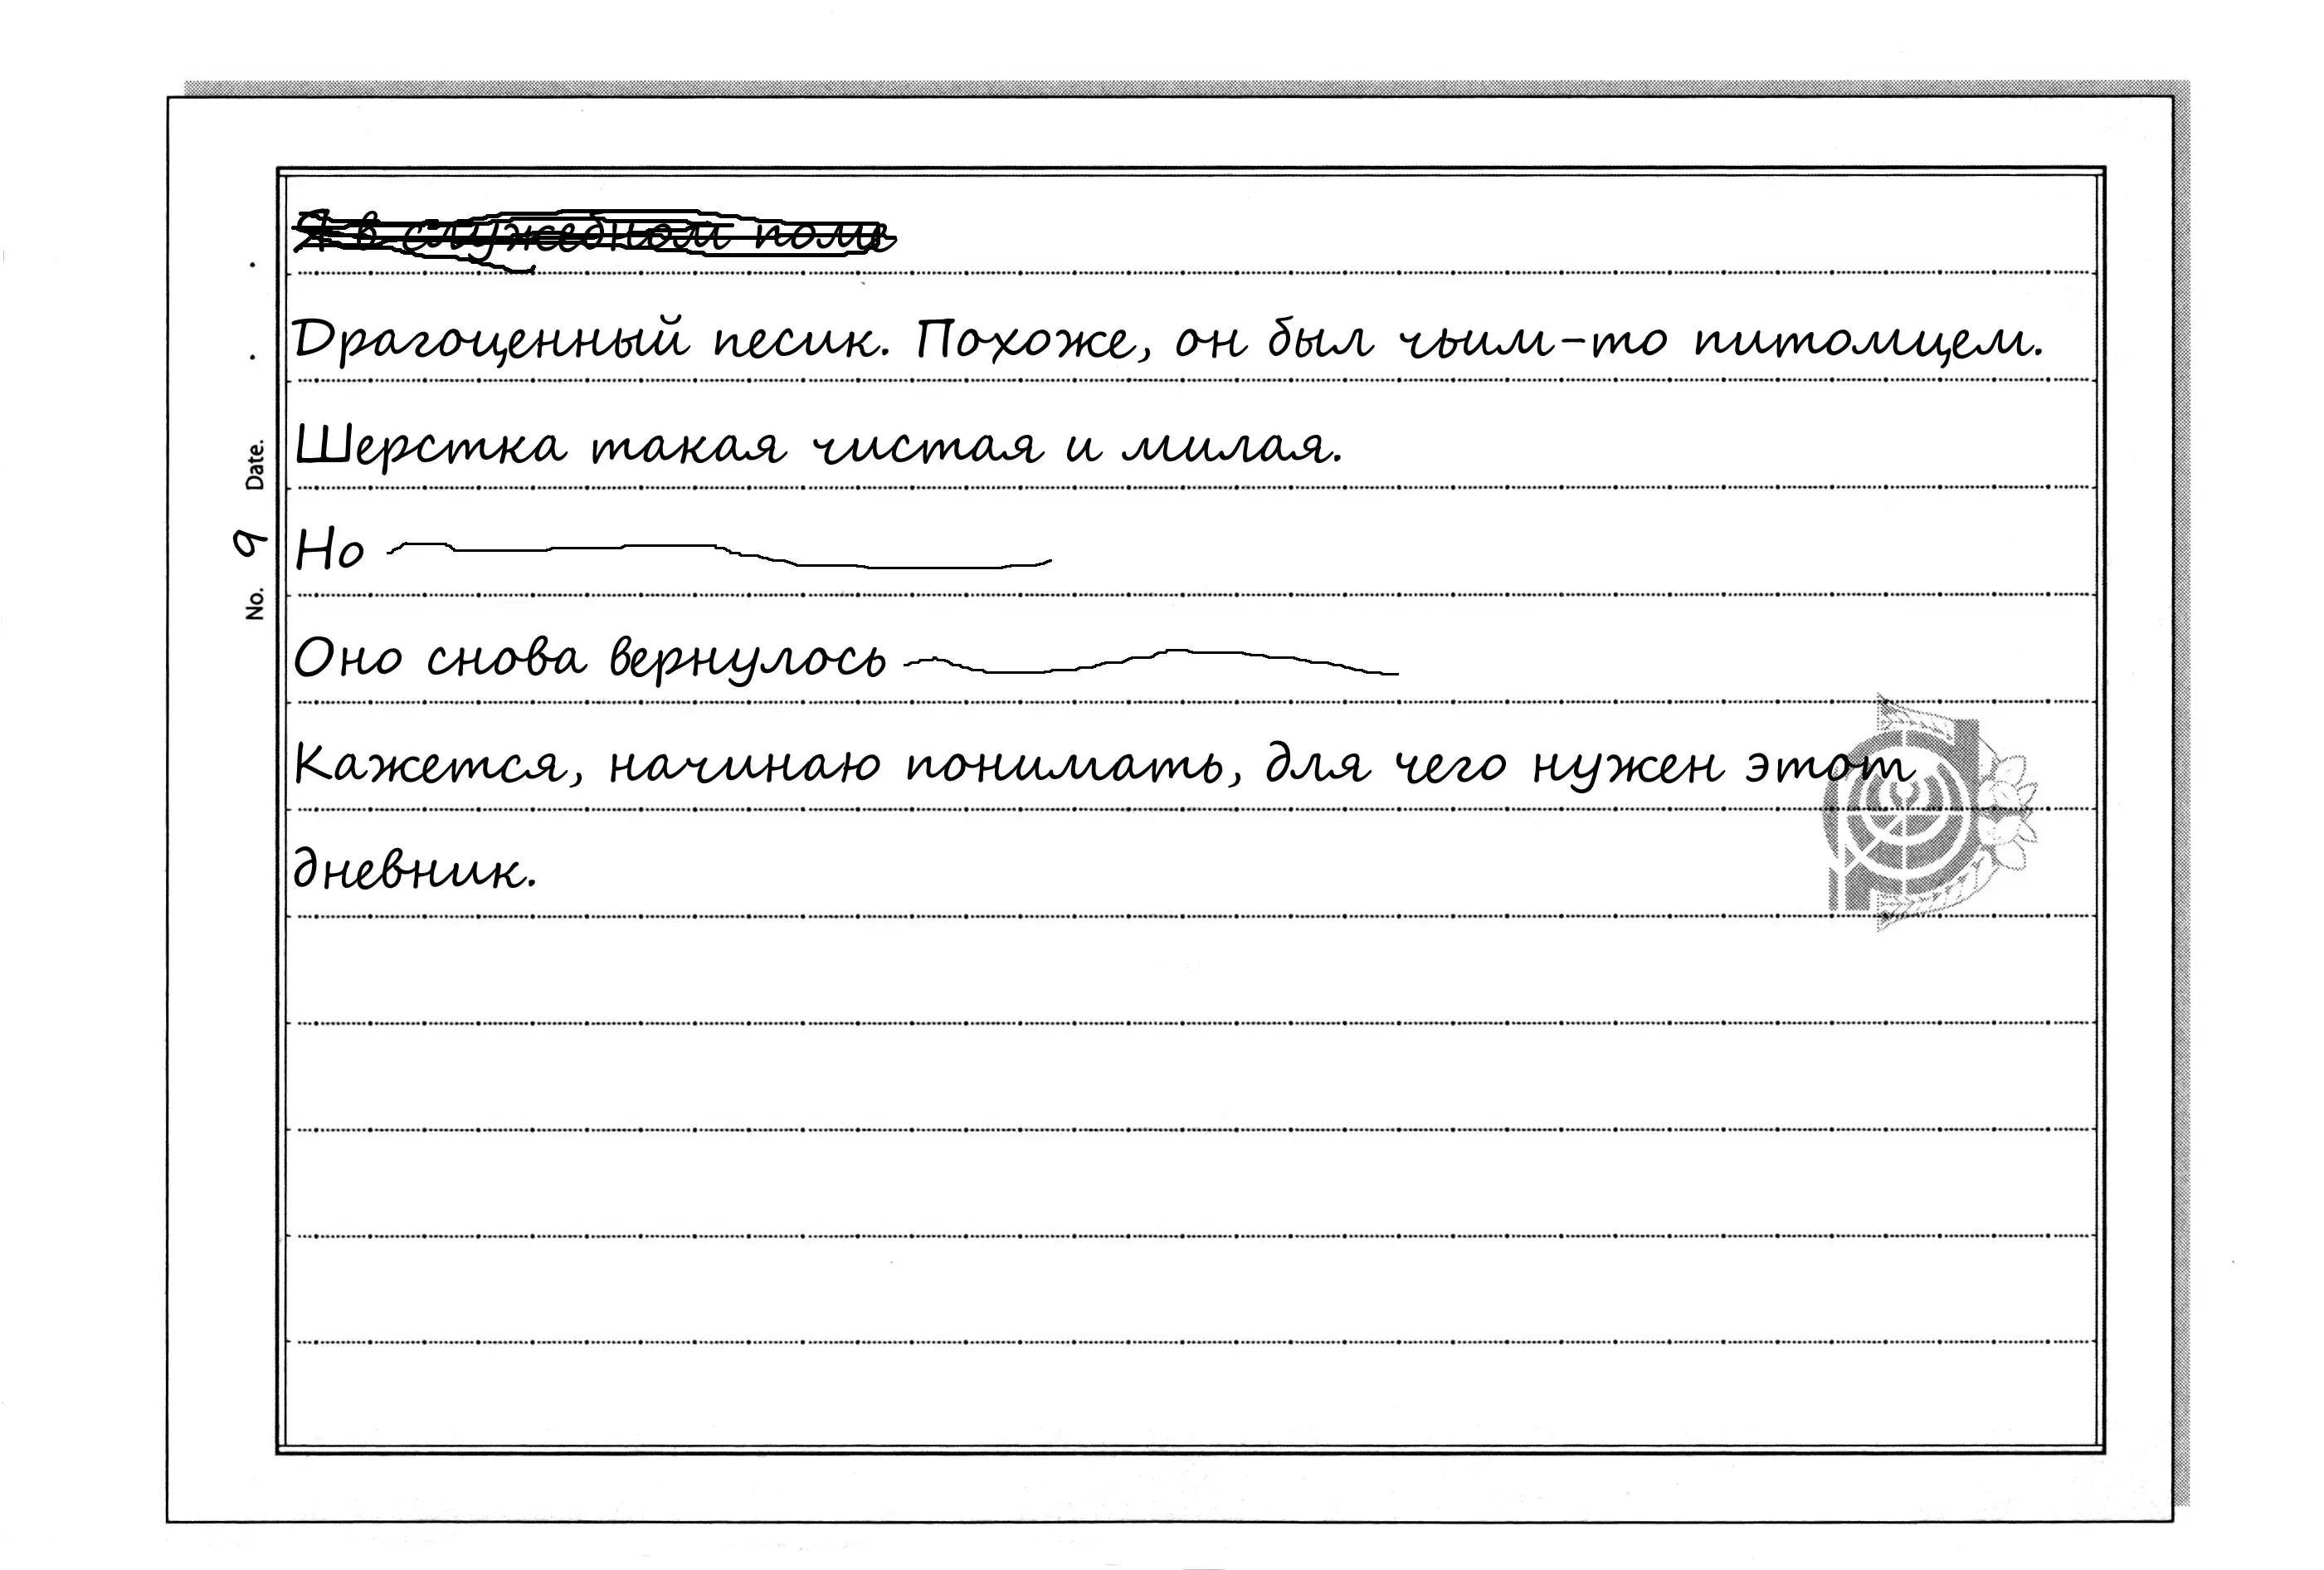 Драгоценный песик. Похоже, он был чьим-то питомцем.
Шерстка такая чистая и милая.
Но
Оно снова вернулось
Кажется, начинаю понимать, для чего нужен этот
дневник.
No. 9 Date. . .